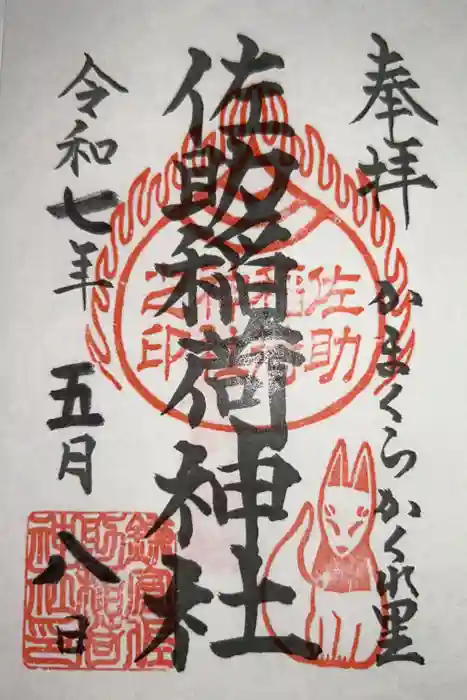 奉拝
かまくらかくれ里
佐助稲荷神社
佐助
稲荷
神社
之印
令和七年
五月
八日
鎌倉佐
助稲荷
神社印